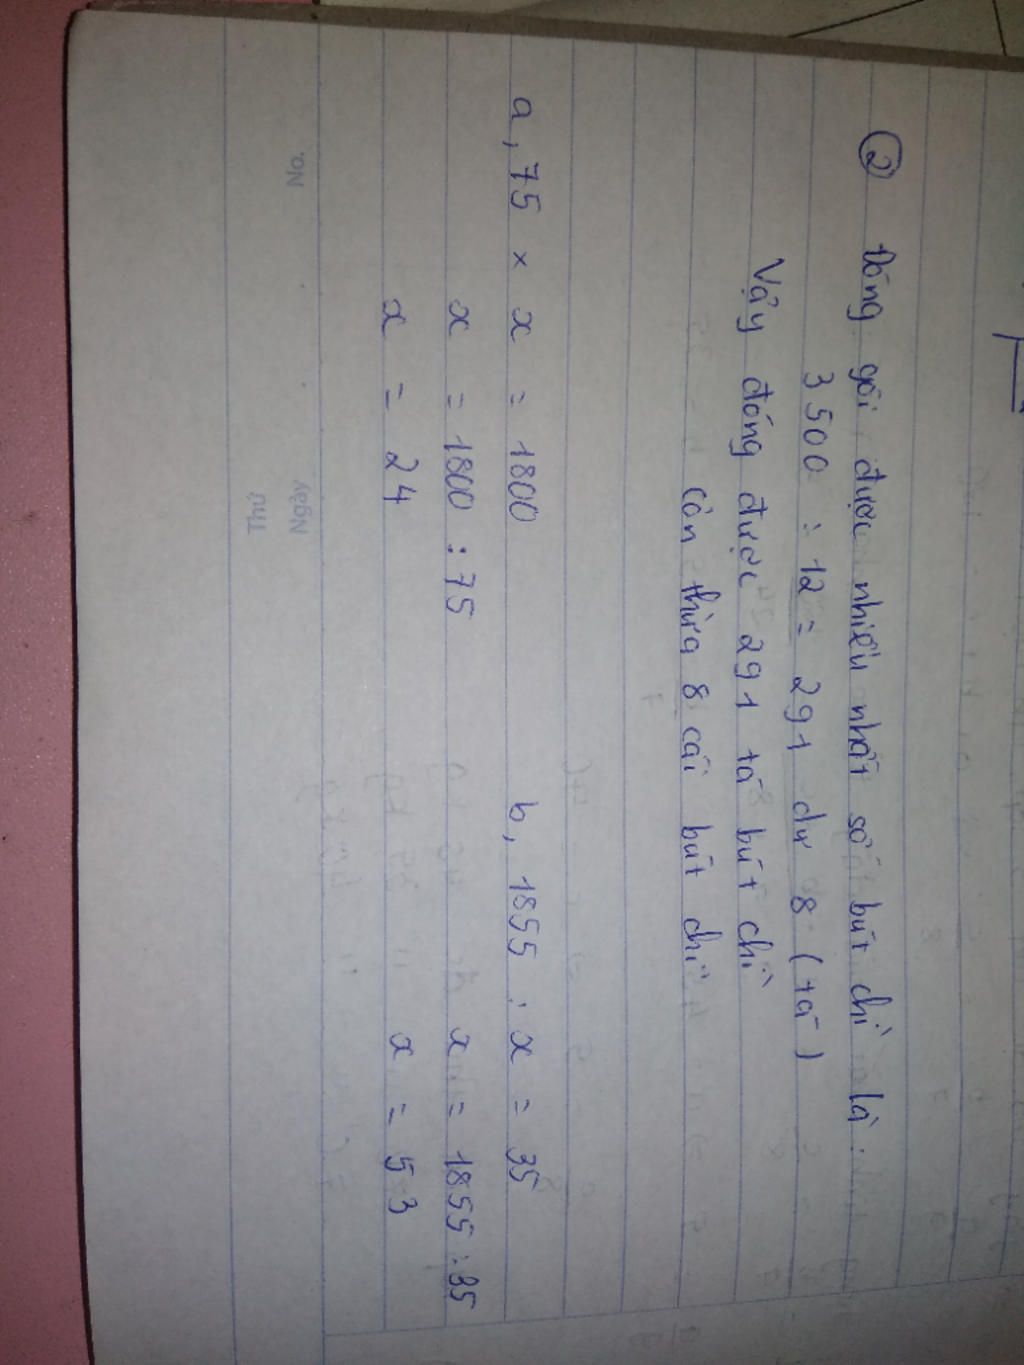 ② Đóng gói được nhiều nhất số bút chì là:
3500 : 12 = 291 dư 8 (tá)
Vậy đóng được 291 tá bút chì
còn thừa 8 cái bút chì
a, 75 × x = 1800
b, 1855 : x = 35
x = 1800 : 75
x = 1855 : 35
x = 24
x = 53
No.
Ngày
Thứ